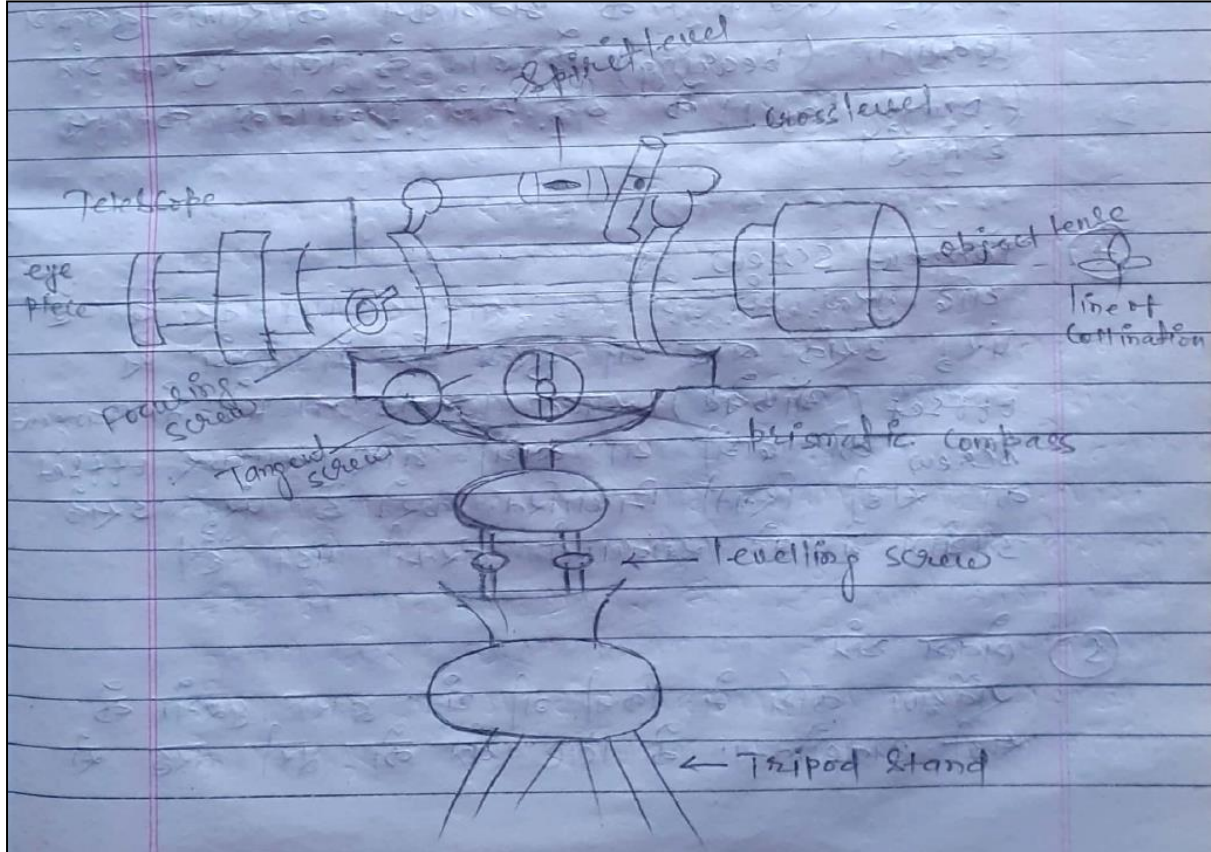 Spirit level
Cross level
Telescope
object lense
eye
piece
line of
Collination
Focusing
screw
Tangent
screw
prismatic compass
← levelling screw
2
← Tripod stand